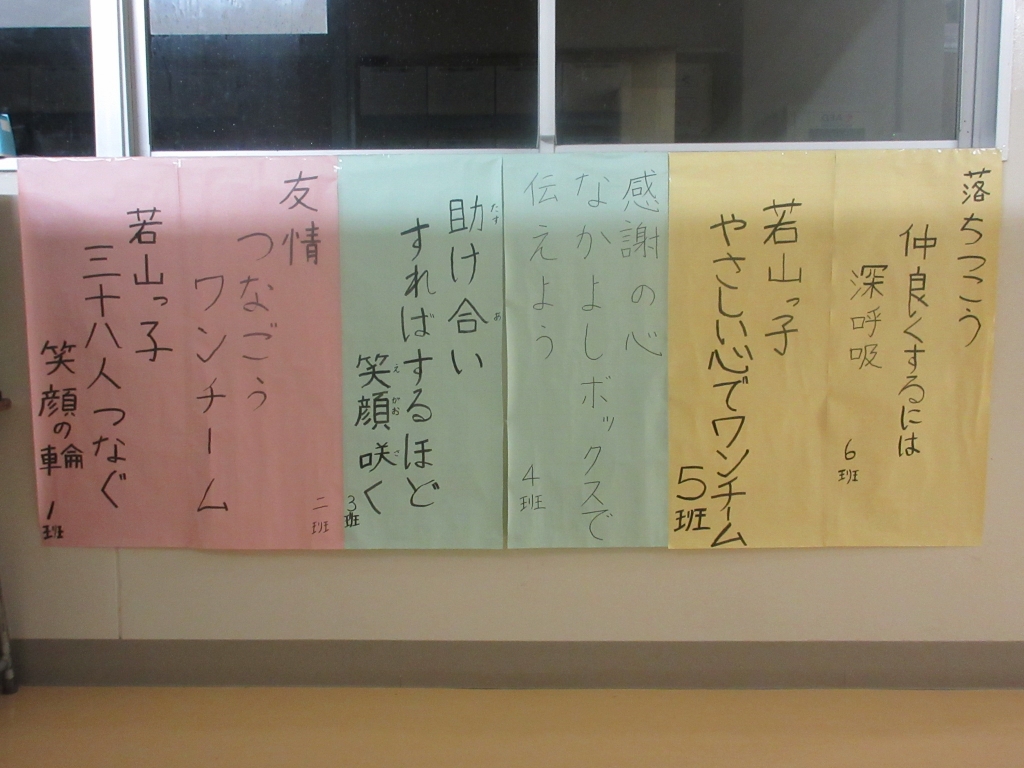 落ちつこう
仲良くするには
深呼吸
6班
若山っ子
やさしい心でワンチーム
5班
感謝の心
なかよしボックスで
伝えよう
4班
助け合い
たす
あ
すればするほど
笑顔咲く
え
がお
さ
3班
友情
つなごう
ワンチーム
二班
若山っ子
三十八人つなぐ
笑顔の輪
1班